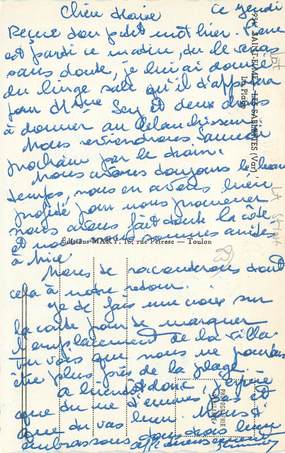 Chère Marie ce jeudi
Reçu ton petit mot hier. 
est parti ce matin, tu le verras
sans doute, je lui ai donné
du linge sale qu'il t'apportera
pour Mme et deux draps
à donner au blanchisseur
Nous reviendrons Samedi
prochain par le train.
Nous avons toujours le beau
temps, nous en avons bien
profité pour nous promener
nous avons fait toute la côte
et nous sommes allés
à Nice
Editions MAR, 16, rue Peiresc — Toulon
Nous te raconterons tout
cela à notre retour.
Je te fais une croix sur
la carte pour te marquer
l'emplacement de la villa.
Tu vois que nous ne pouvions
être plus près de la plage.
A bientôt donc, j'espère
que tu ne t'ennuies pas et
que tu vas bien. Nous t'
embrassons tous trois bien
affectueusement
LES SABLETTES (Var)
La Plage